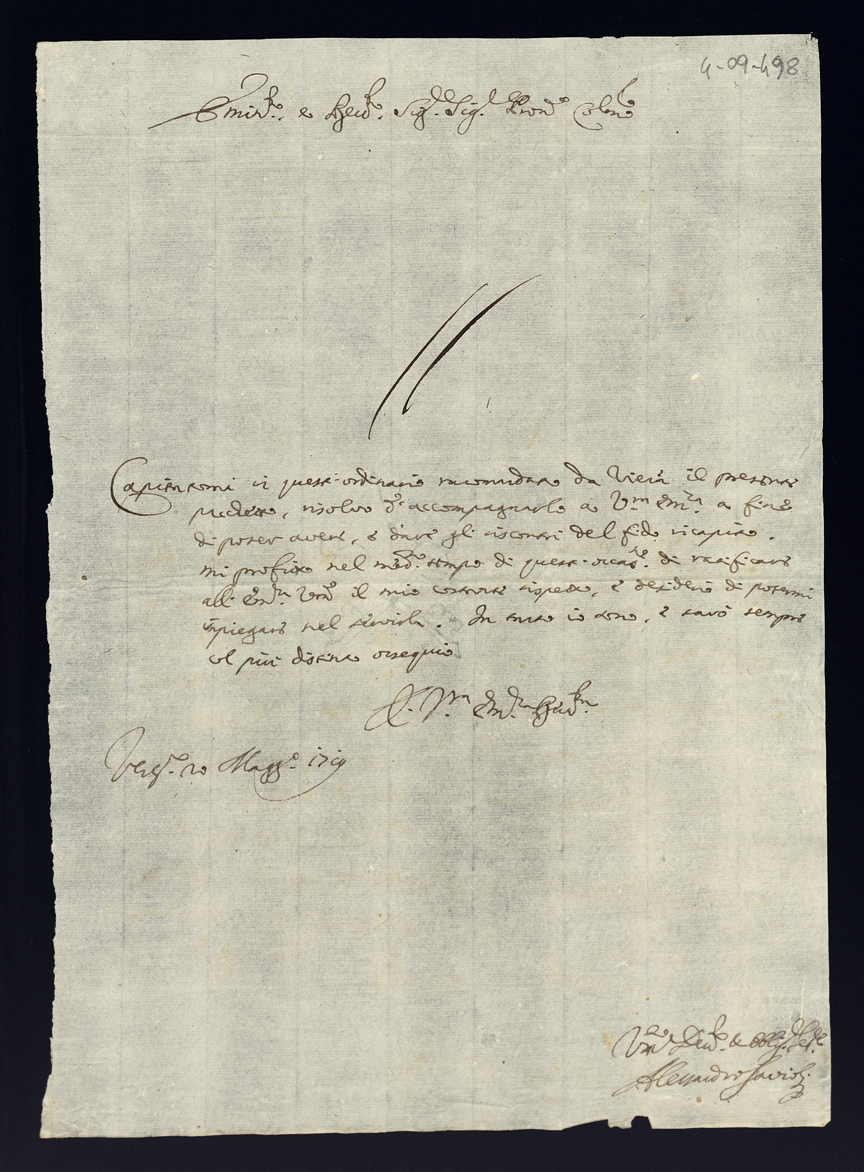 4-09-498
Emin.mo e Rev.mo Sig.r Sig.r Pron. Col.mo
Capitatomi in quest'ordinario raccomandato da Vienna il presente
pachetto, risolvo d'accompagnarlo a V.ra Em.za a fine
di poter avere, e dare gli riscontri del fido ricapito.
Mi profitto nel med.mo tempo di quest'occas.ne di ratificare
all'Em.za V.ra il mio costante rispetto, e desiderio di potermi
impiegare nel servirla. In tanto io sono, e sarò sempre
col più distinto ossequio
Di V.ra Em.za Rev.ma
20 Magg.o
Alessandro